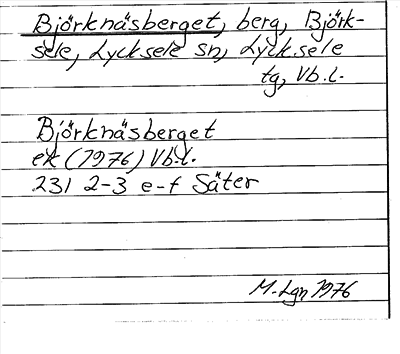 Björknäsberget, berg, Björk-
sele, Lycksele sn, Lycksele
tg, Vb.l.
Björknäsberget
ek (1976) Vb.l.
231 2-3 e-f Säter
M. Lgn 1976